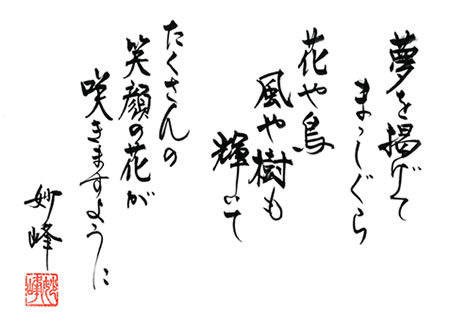 夢を掲げて
まっしぐら
花や鳥
風や樹も
輝いて
たくさんの
笑顔の花が
咲きますように
妙峰
妙峰